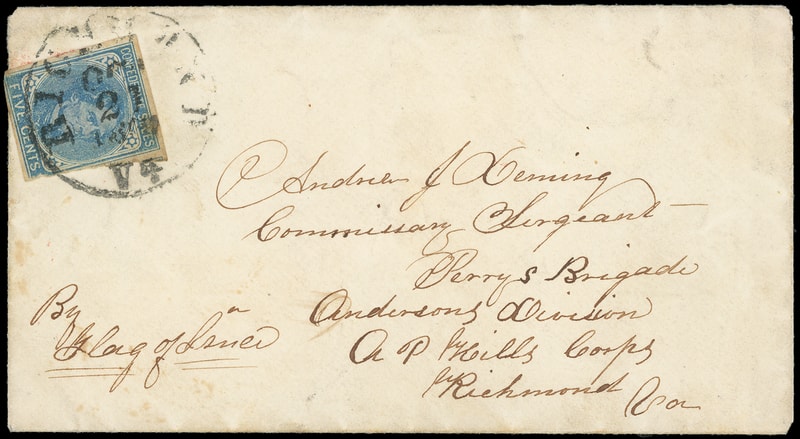 RICHMOND
VA
OCT
2
CONFEDERATE STATES
FIVE CENTS
Andrew J Deming
Commissary Sergeant
Perrys Brigade
Andersons Division
A P Hills Corps
Richmond Va
By
"Flag of Truce"